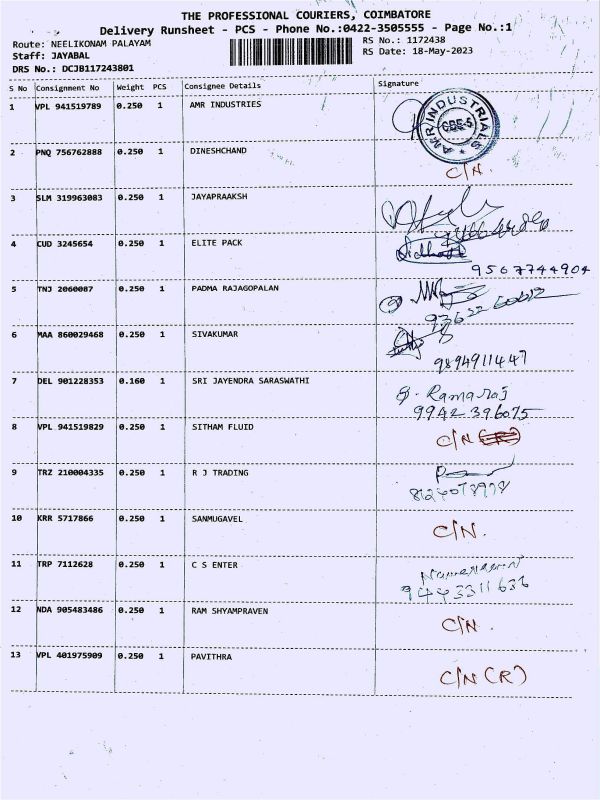 THE PROFESSIONAL COURIERS, COIMBATORE
Delivery Runsheet - PCS - Phone No.:0422-3505555 - Page No.:1
Route: NEELIKONAM PALAYAM
RS No.: 1172438
Staff: JAYABAL
RS Date: 18-May-2023
DRS No.: DCJB117243801
S No Consignment No Weight PCS Consignee Details Signature
1 VPL 941519789 0.250 1 AMR INDUSTRIES
AMR INDUSTRIALS
CBE-5
2 PNQ 756762888 0.250 1 DINESHCHAND C/N.
3 SLM 319963083 0.250 1 JAYAPRAAKSH
4 CUD 3245654 0.250 1 ELITE PACK
9567744904
5 TNJ 2060087 0.250 1 PADMA RAJAGOPALAN
6 MAA 860029468 0.250 1 SIVAKUMAR
9894911447
7 DEL 901228353 0.160 1 SRI JAYENDRA SARASWATHI
Ramaraj
9942396075
8 VPL 941519829 0.250 1 SITHAM FLUID C/N
9 TRZ 210004335 0.250 1 R J TRADING
10 KRR 5717866 0.250 1 SANMUGAVEL C/N.
11 TRP 7112628 0.250 1 C S ENTER
9443311636
12 NDA 905483486 0.250 1 RAM SHYAMPRAVEN C/N.
13 VPL 401975909 0.250 1 PAVITHRA C/N (R)